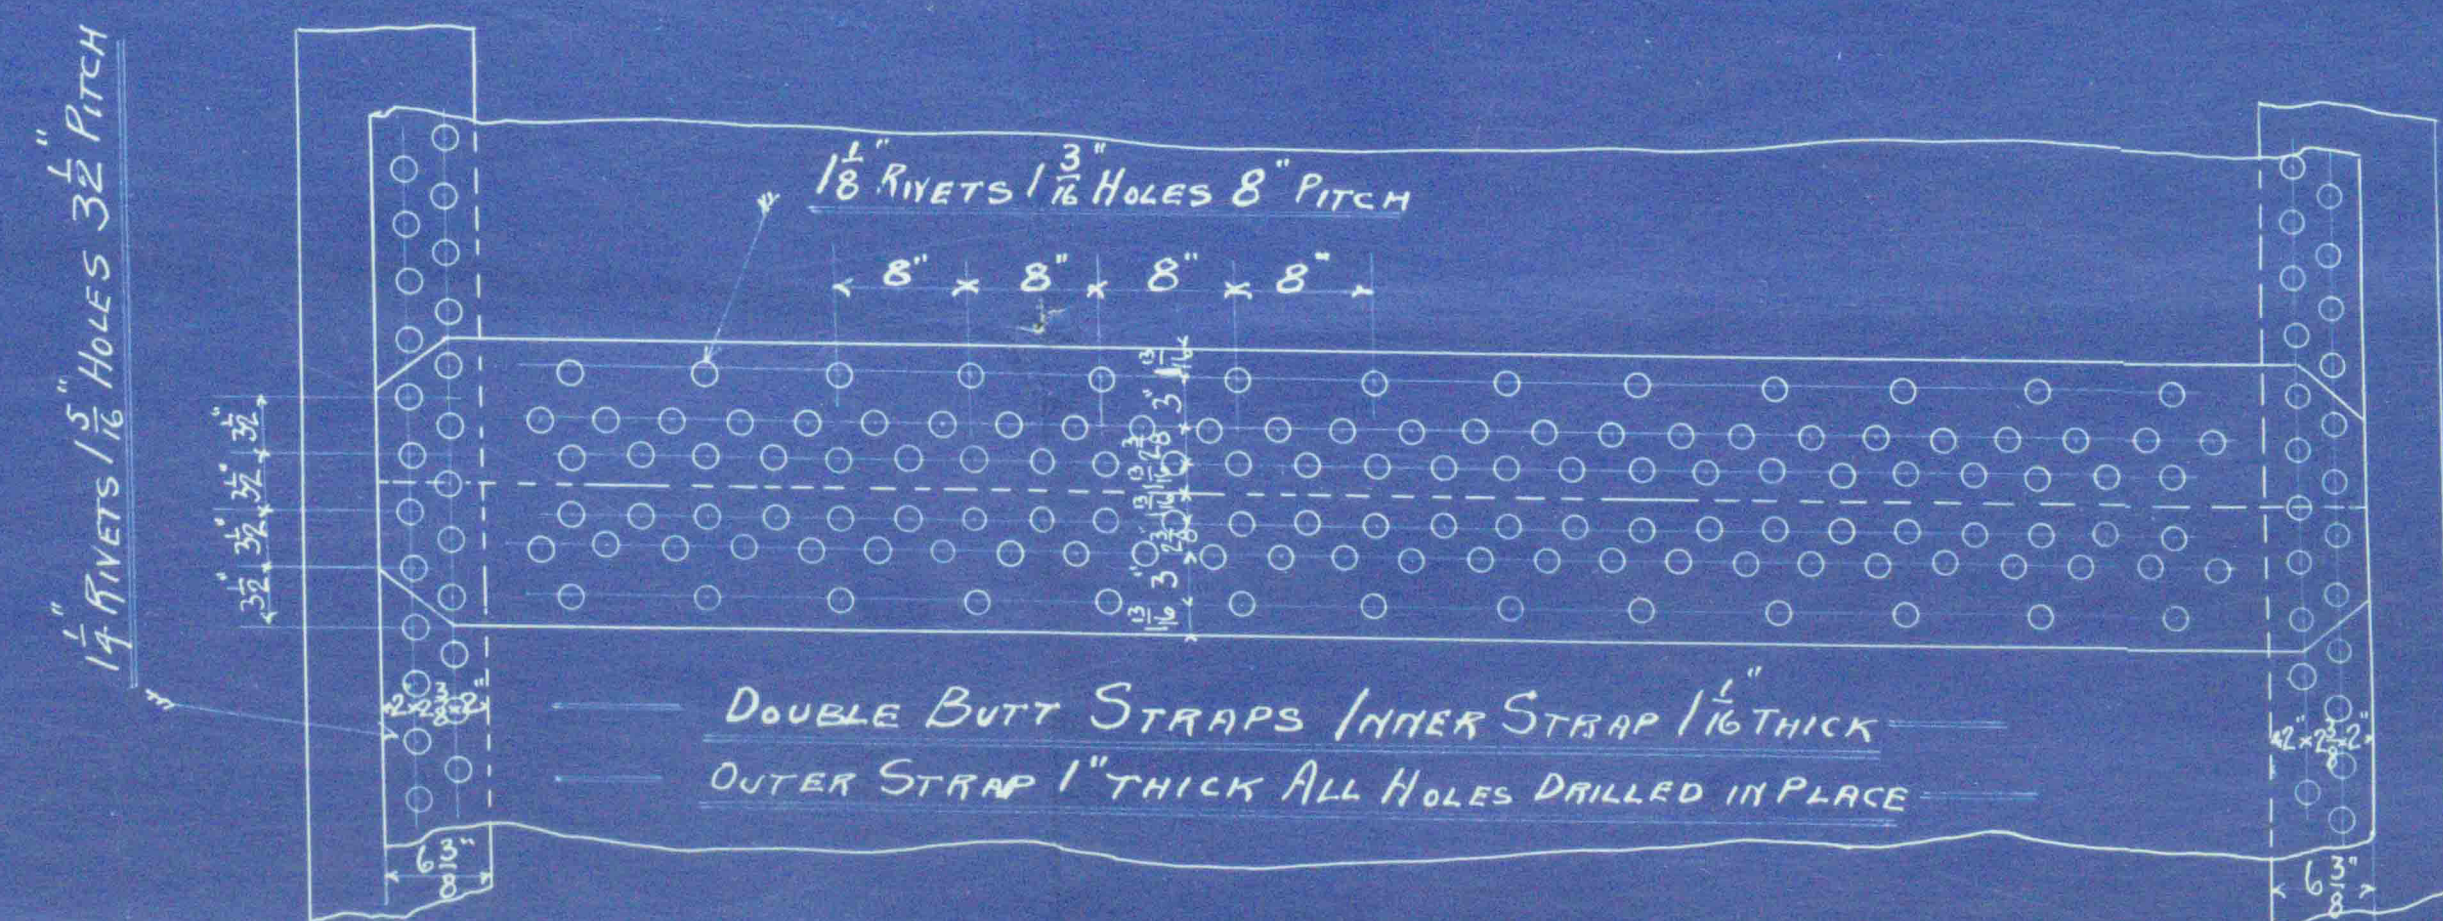 1 1/4" RIVETS 1 5/16" HOLES 3 1/2" PITCH
1 1/8" RIVETS 1 3/16" HOLES 8" PITCH
8" 8" 8" 8"
3 1/2" 3 1/2" 3 1/2" 3 1/2"
1 13/16 3" 2 3/8 1 13/16 1 13/16 2 3/8 3" 1 13/16
2" 2 3/8 2"
DOUBLE BUTT STRAPS INNER STRAP 1 1/16" THICK
OUTER STRAP 1" THICK ALL HOLES DRILLED IN PLACE
2" 2 3/8 2"
6 3/8"
6 3/8"